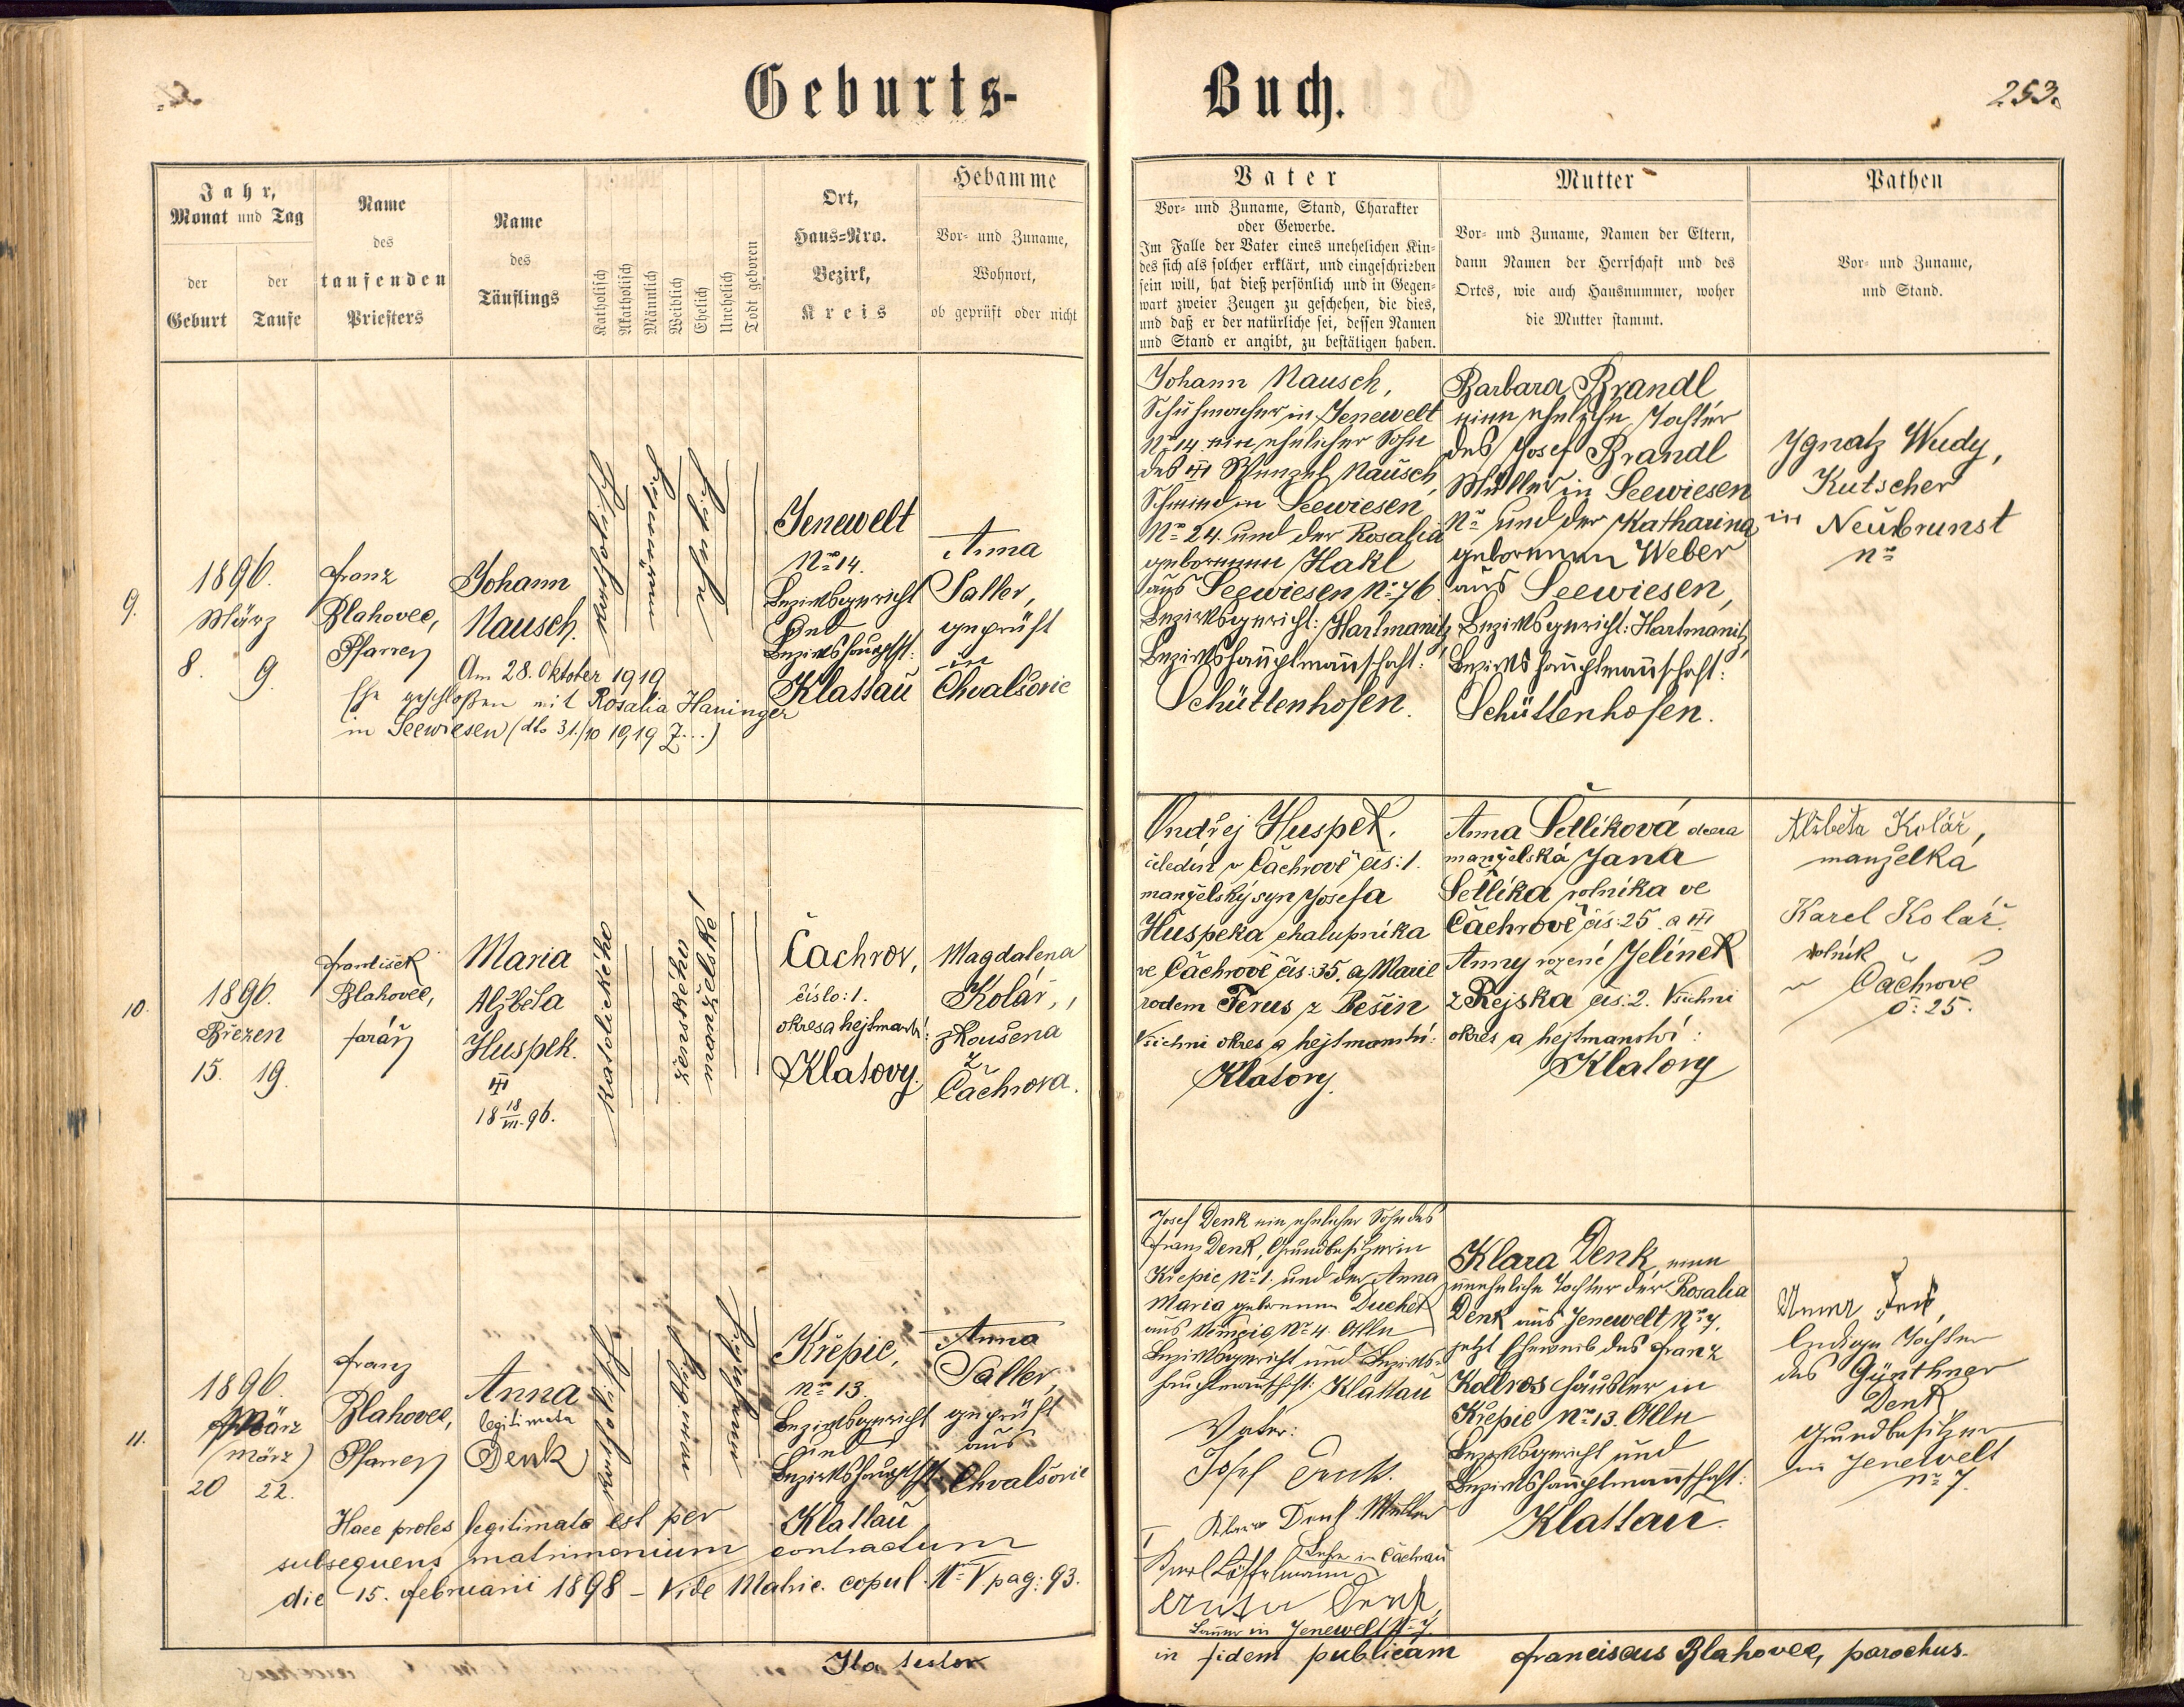 Geburts-
Buch.
253.
Jahr,
Monat und Tag
der
Geburt
der
Taufe
Name
des
taufenden
Priesters
Name
des
Täuflings
Katholisch
Akatholisch
Männlich
Weiblich
Ehelich
Unehelich
Todt geboren
Ort,
Haus=Nro.
Bezirk,
Kreis
Hebamme
Vor- und Zuname,
Wohnort,
ob geprüft oder nicht
Vater
Vor- und Zuname, Stand, Charakter
oder Gewerbe.
Im Falle der Vater eines unehelichen Kin-
des sich als solcher erklärt, und eingeschrieben
sein will, hat dieß persönlich und in Gegen-
wart zweier Zeugen zu geschehen, die dies,
und daß er der natürliche sei, dessen Namen
und Stand er angibt, zu bestätigen haben.
Mutter
Vor- und Zuname, Namen der Eltern,
dann Namen der Herrschaft und des
Ortes, wie auch Hausnummer, woher
die Mutter stammt.
Pathen
Vor- und Zuname,
und Stand.
9.
1896.
März
8. 9.
Franz
Blahovec,
Pfarrer
Johann
Nausch.
Am 28. Oktober 1919
Ehe geschloßen mit Rosalia Haninger
in Seewiesen (dto 31./10 1919 Z...)
Jenewelt
No 14.
Bezirksgericht
und
Bezirkshauptft:
Klattau
Anna
Saller,
geprüft
in
Chvalšovic
Johann Nausch,
Schuhmacher in Jenewelt
No 14. ein ehelicher Sohn
des Wenzel Nausch,
Schmied in Seewiesen
No 24. und der Rosalia
gebornen Hakl
aus Seewiesen No 76.
Bezirksgericht: Hartmanitz
Bezirkshauptmannschaft:
Schüttenhofen.
Barbara Brandl
eine eheliche Tochter
des Josef Brandl
Müller in Seewiesen
No und der Katharina
gebornen Weber
aus Seewiesen,
Bezirksgericht: Hartmanitz,
Bezirkshauptmannschaft:
Schüttenhofen.
Ignatz Wudy,
Kutscher
in Neubrunst
no
10.
1896.
Březen
15. 19.
František
Blahovec,
farář
Maria
Alžběta
Huspek.
18 18/VII. 96.
katolického
ženského
manželské
Čachrov,
číslo: 1.
okres a hejtmanství:
Klatovy.
Magdalena
Kolář,
zkoušena
z
Čachrova.
Ondřej Huspek,
čeledín v Čachrově čís: 1.
manželský syn Josefa
Huspeka chalupníka
ve Čachrově čís: 35. a Marie
rodem Terus z Bešin
Všichni okres a hejtmanství:
Klatovy.
Anna Šetlíková dcera
manželská Jana
Šetlíka rolníka ve
Čachrově čís: 25. a
Anny rozené Jelínek
z Rejska čís: 2. Všichni
okres a hejtmanství:
Klatovy
Alžběta Kolář,
manželka
Karel Kolář.
rolník
v Čachrově
č: 25.
11.
1896.
März
(März)
20 22.
Franz
Blahovec,
Pfarrer
Anna
legitimata
Denk
Křepic,
no 13.
Bezirksgericht
und
Bezirkshauptft:
Klattau
Anna
Saller,
geprüft
aus
Chvalšovic
Haec proles legitimata est per
subsequens matrimonium contractum
die 15. Februarii 1898 - Vide Matric. copul. No V pag: 93.
Josef Denk ein ehelicher Sohn des
Franz Denk, Grundbesitzer in
Křepic No 1. und der Anna
Maria gebornen Duchek
aus No 4. Alle
Bezirksgericht und Bezirks-
hauptmannschaft: Klattau
Vater:
Josef Denk.
Klara Denk Mutter
Karl Löffelmann
in Čachrau
Denk,
in Jenewelt No 7.
Klara Denk, eine
uneheliche Tochter der Rosalia
Denk aus Jenewelt No 7.
jetzt Eheweib des Franz
Kollros Häusler in
Křepic No 13. Alle
Bezirksgericht und
Bezirkshauptmannschaft:
Klattau.
ledige Tochter
des Günthner
Denk
Grundbesitzer
in Jenewelt
no 7.
Ita testor
in fidem publicam Franciscus Blahovec, parochus.